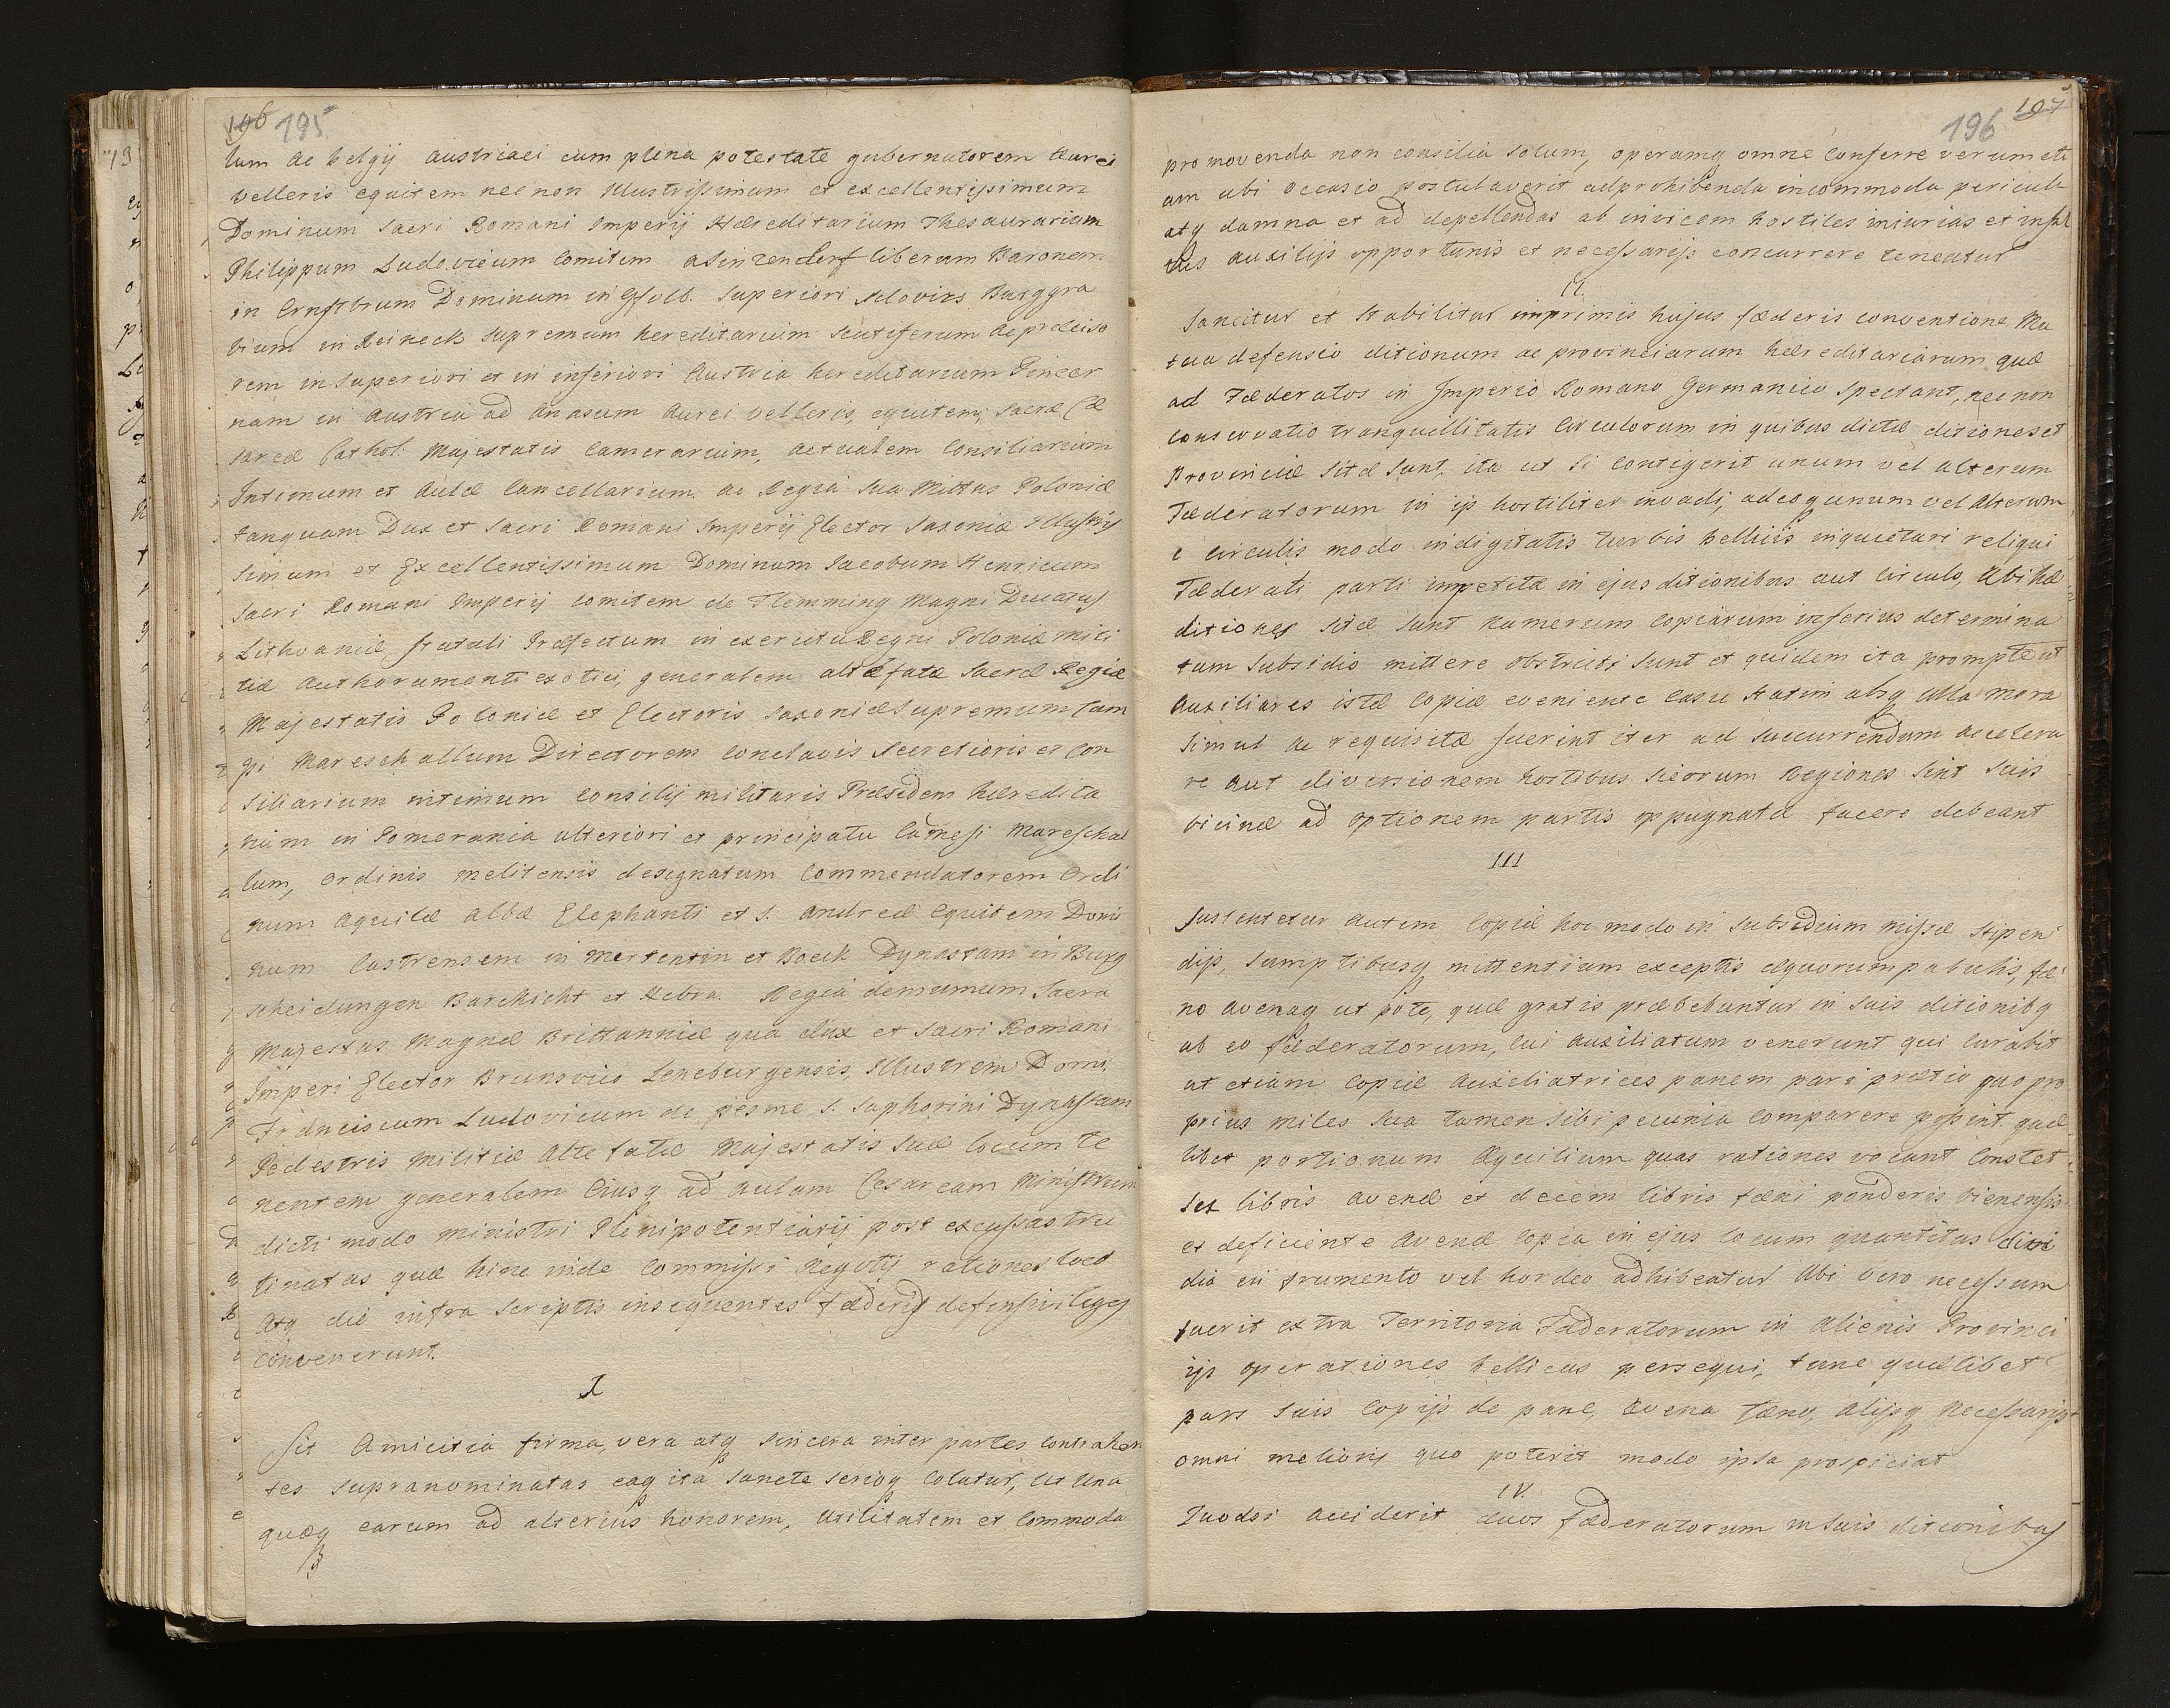 196 195.
lum ac belgij austriaci cum plena potestate gubernatorem aurei
velleris equitem nec non Illustrissimum et excellentissimum
Dominum Sacri Romani Imperij Hæreditarium Thesaurarium
Philippum Ludovicum Comitem a Sinzendorf liberum Baronem
in Ernstbrum Dominum in Gfolb. Superiori Selovirs Burggra
vium in Reineck supremum hereditarium scutiferum ac præciso
rem in superiori et in inferiori Austria hereditarium Pincer
nam in Austria ad Anasum Aurei velleris, equitem, Sacræ Cæ
sareæ Cathol: Majestatis Camerarium, actualem Consiliarium
Intimum et Aulæ Cancellarium. Ac Regia sua Mittas Poloniæ
tanquam Dux et Sacri Romani Imperij Elector Saxoniæ Illustris
simum et Excellentissimum Dominum Jacobum Henricum
Sacri Romani Imperij comitem de Flemming Magni Ducatus
Lithvaniæ stutuli Præfectum in exercitu Regni Poloniæ mili
tiæ authoramenti exotici, generalem altæfatæ Sacræ Regiæ
Majestatis Poloniæ et Electoris Saxoniæ supremum Cam
pi Mareschallum Directorem Conclavis Secretioris et Con
siliarium intimum Consilij militaris Præsidem hæredita
rium in Pomerania ulteriori et principatu Camesi Mareschal
lum, Ordinis melitensis designatum Commendatorem Ordi
num Aquilæ Albæ Elephanti et S. Andreæ Equitem Domi
num Castrensem in Mertentin et Boeck Dynastam in Burg
scheidungen Barchicht et Nebra. Regia demumum Sacra
Majestas Magnæ Brittanniæ qua dux et Sacri Romani
Imperi Elector Brunsvico Leneburgensis, Illustrem Dom.
Franciscum Ludovicum de pesme S. Saphorini Dynastam
Pedestris Militiæ Alte fatæ Majestatis Suæ locum te
nentem generalem Eiusq ad aulam Cesaream Ministrum
dicti modo ministri Plenipotentiarij post excussas tru
tinatas quæ hinc inde Commissi Negotij rationes loco
atq die infra scriptis insequentes fæderis defensivi leges
convenerunt.
I
Sit Amicitia firma, vera atq sincera inter partes contrahen
tes supranominatas eaq ita sancte serioq Colatur, ut una
quæq earum ad alterius honorem, utilitatem et Commoda
196 197
promovenda non consilia solum, operamq omne conferre verum eti
am ubi occasio postulaverit ad prohibenda incommoda pericula
atq damna et ad depellendas ab invicem hostiles iniurias et insul
tus auxilijs opportunis et necessarijs concurrere teneatur
II.
Sancitur et Stabilitur imprimis hujus fæderis conventione Mu
tua defensio ditionum ac provinciarum hæreditariarum quæ
ad Fæderatos in Imperio Romano Germanico spectant, nec non
conservatio tranquillitatis Circulorum in quibus dictæ ditiones et
Provinciæ sitæ sunt, ita ut si contigerit unum vel alterum
Fæderatorum in ijs hostiliter invadi, adeoq unum vel alterum
e circulis modo indigitatis turbis bellicis inquietari reliqui
Fæderati parti impetitæ in ejus ditionibus aut circulo, ubi hæ
ditiones sitæ sunt numerum copiarum inferius determina
tum subsidio mittere obstricti sunt et quidem ita prompte ut
auxiliares istæ Copiæ eveniente casu statim absq ulla mora
simul ac requisitæ fuerint iter ad succurrendum accelera
re aut diversionem hostibus si eorum Regiones sint suis
vicinæ ad optionem partis oppugnatæ facere debeant
III
Sustentetur autem Copiæ hoc modo in subsidium missæ stipen
dijs, sumptibusq mittentium exceptis equorum pabulis, fæ
no avenaq ut pote, quæ gratis præbebuntur in suis ditionibq
ab eo fæderatorum, cui auxiliatum venerunt qui curabit
ut etiam Copiæ auxiliatrices panem pari prætio quo pro
prius miles sua tamen sibi pecunia Comparere possint quæ
libet portionum Aquilium quas rationes vocant constet
sex libris avenæ et decem libris fæni ponderis vienensis
et deficiente avenæ copia in ejus locum quantitas dimi
dia in frumento vel hordeo adhibeatur ubi vero necessum
fuerit extra Territoria Fæderatorum in alienis Provinci
ijs operationes bellicas persequi, tunc quælibet
pars suis copijs de pane, avena fæno, alijsq necessarijs
omni meliori quo poterit modo ipsa prospiciat
IV.
Quodsi acciderit duos fæderatorum in suis ditionibus